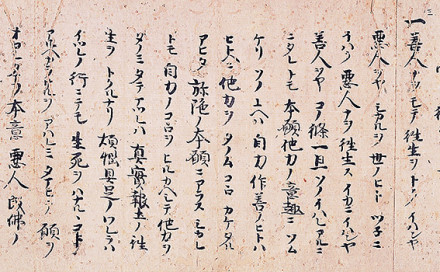 一 善人ナヲモテ往生ヲトク、イハンヤ
悪人ヲヤ シカルヲ世ノヒトツ子ニ
イハク悪人ナヲ往生ス イカニイハンヤ
善人ヲヤ コノ條一旦ソノイハレアルニ
ニタレトモ本願他力ノ意趣ニソム
ケリ ソノユヘハ自力作善ノヒトハ
ヒトヘニ他力ヲタノムコヽロカケタル
アヒタ弥陀ノ本願ニアラス シカレ
トモ自力ノコヽロヲヒルカヘシテ他力ヲ
タノミタテマツレハ真實報土ノ往
生ヲトクルナリ 煩惱具足ノワレラハ
イツレノ行ニテモ生死ヲハナルヽコトア
ルヘカラサルヲアハレミタマヒテ願ヲ
オコシタマフ本意悪人成佛ノ